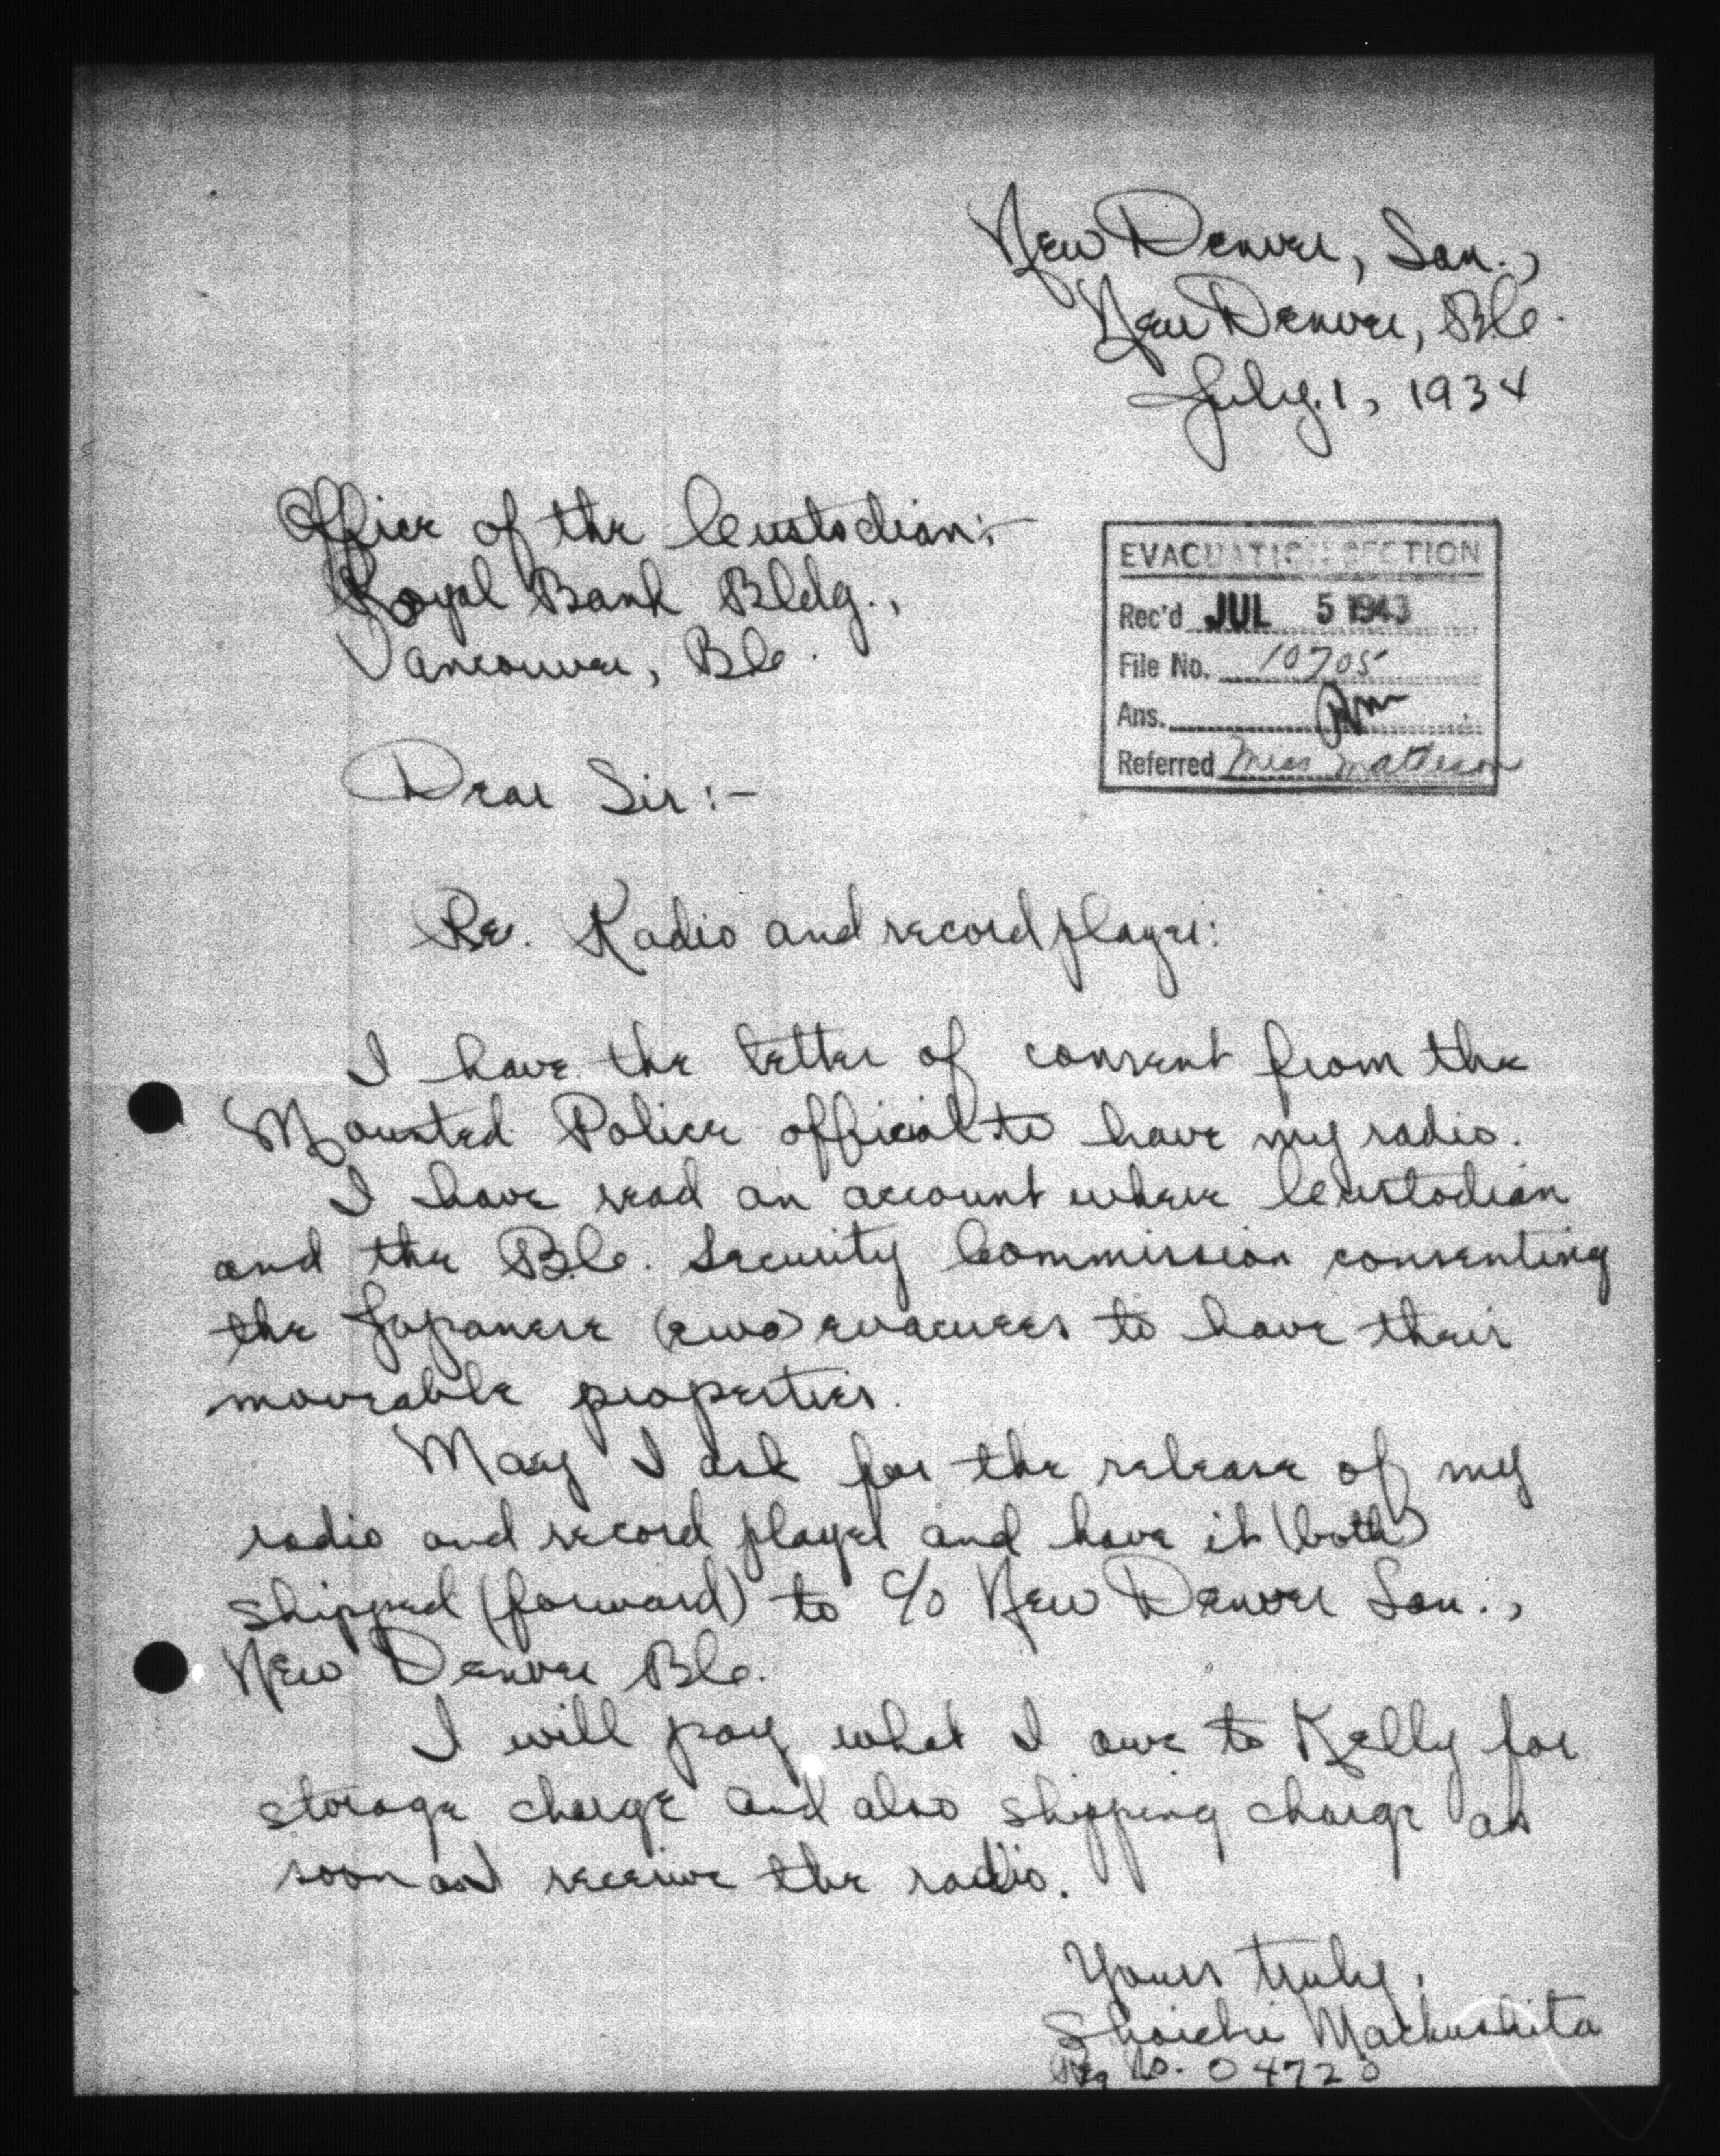 New Denver, San.,
New Denver, B.C.
July. 1, 1934
Office of the Custodian:-
Royal Bank Bldg.,
Vancouver, B.C.
EVACUATION SECTION
Rec'd JUL 5 1943
File No. 10705
Ans.
Referred Miss Matheson
Dear Sir:-
Re. Radio and record player:
I have the letter of consent from the
Mounted Police official to have my radio.
I have read an account where Custodian
and the B.C. Security Commission consenting
the Japanese evacuees to have their
moveable properties.
May I ask for the release of my
radio and record player and have it (both)
shipped (forward) to c/o New Denver San.,
New Denver B.C.
I will pay what I owe to Kelly for
storage charge and also shipping charge as
soon as I receive the radio.
Yours truly,
Shoichi Matsushita
Reg No. 04723